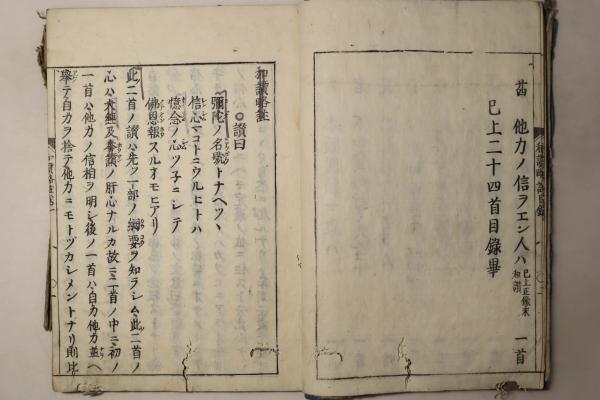 廿四 他力ノ信ヲエン人ハ 已上正像末和讃 一首
已上二十四首目錄畢
和讃略註
○讃曰
彌陀ノ名號トナヘツヽ
信心マコトニウルヒトハ
憶念ノ心ツ子ニシテ
佛恩報スルオモヒアリ
此二首ノ讃ハ先ツ一部ノ綱要ヲ知ラシム此二首ノ
心ハ大經及奉讃ノ肝心ナルカ故ニ二首ノ中ニ初ノ
一首ハ他力ノ信相ヲ明シ後ノ一首ハ自力他力並ヘ
擧テ自力ヲ捨テ他力ニモトヅカシメントナリ則此